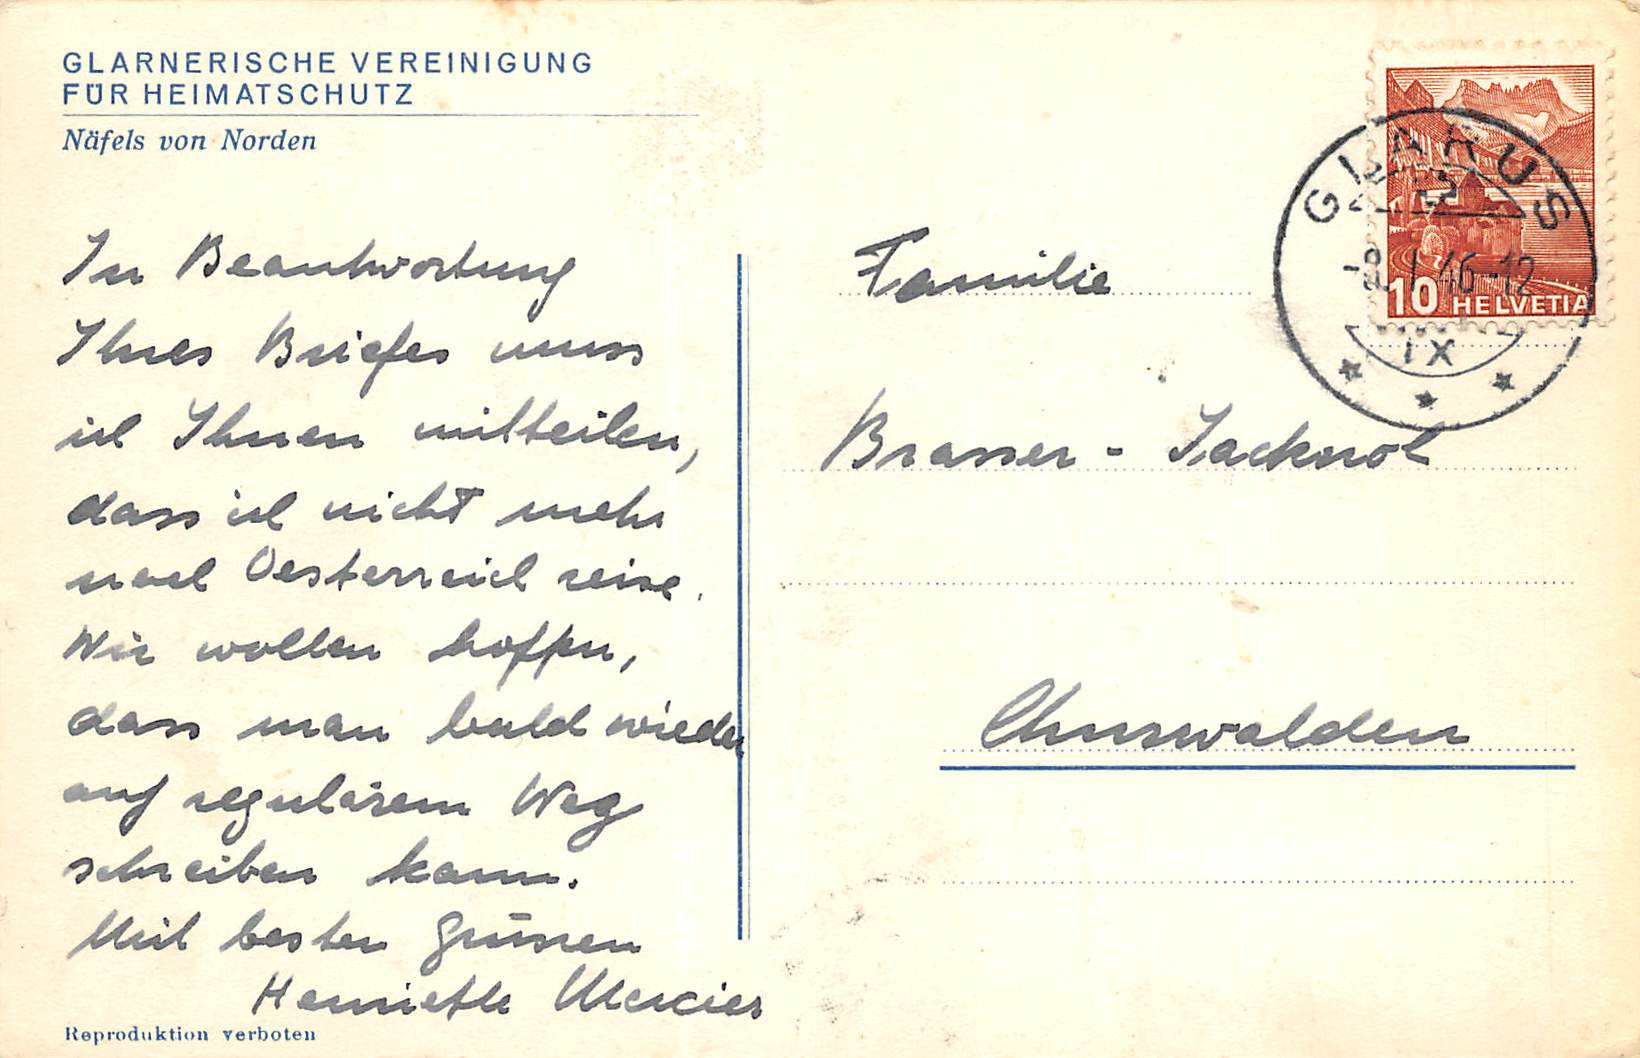 GLARNERISCHE VEREINIGUNG
FÜR HEIMATSCHUTZ
Näfels von Norden
In Beantwortung
Ihres Briefes muss
ich Ihnen mitteilen,
dass ich nicht mehr
nach Oesterreich reise.
Wir wollen hoffen,
dass man bald wieder
auf regulärem Weg
schreiben kann.
Mit besten Grüssen
Henriette Mercier
Reproduktion verboten
GLARUS
I 46-12
IX
10 HELVETIA
Familie
Brasser -
Churwalden